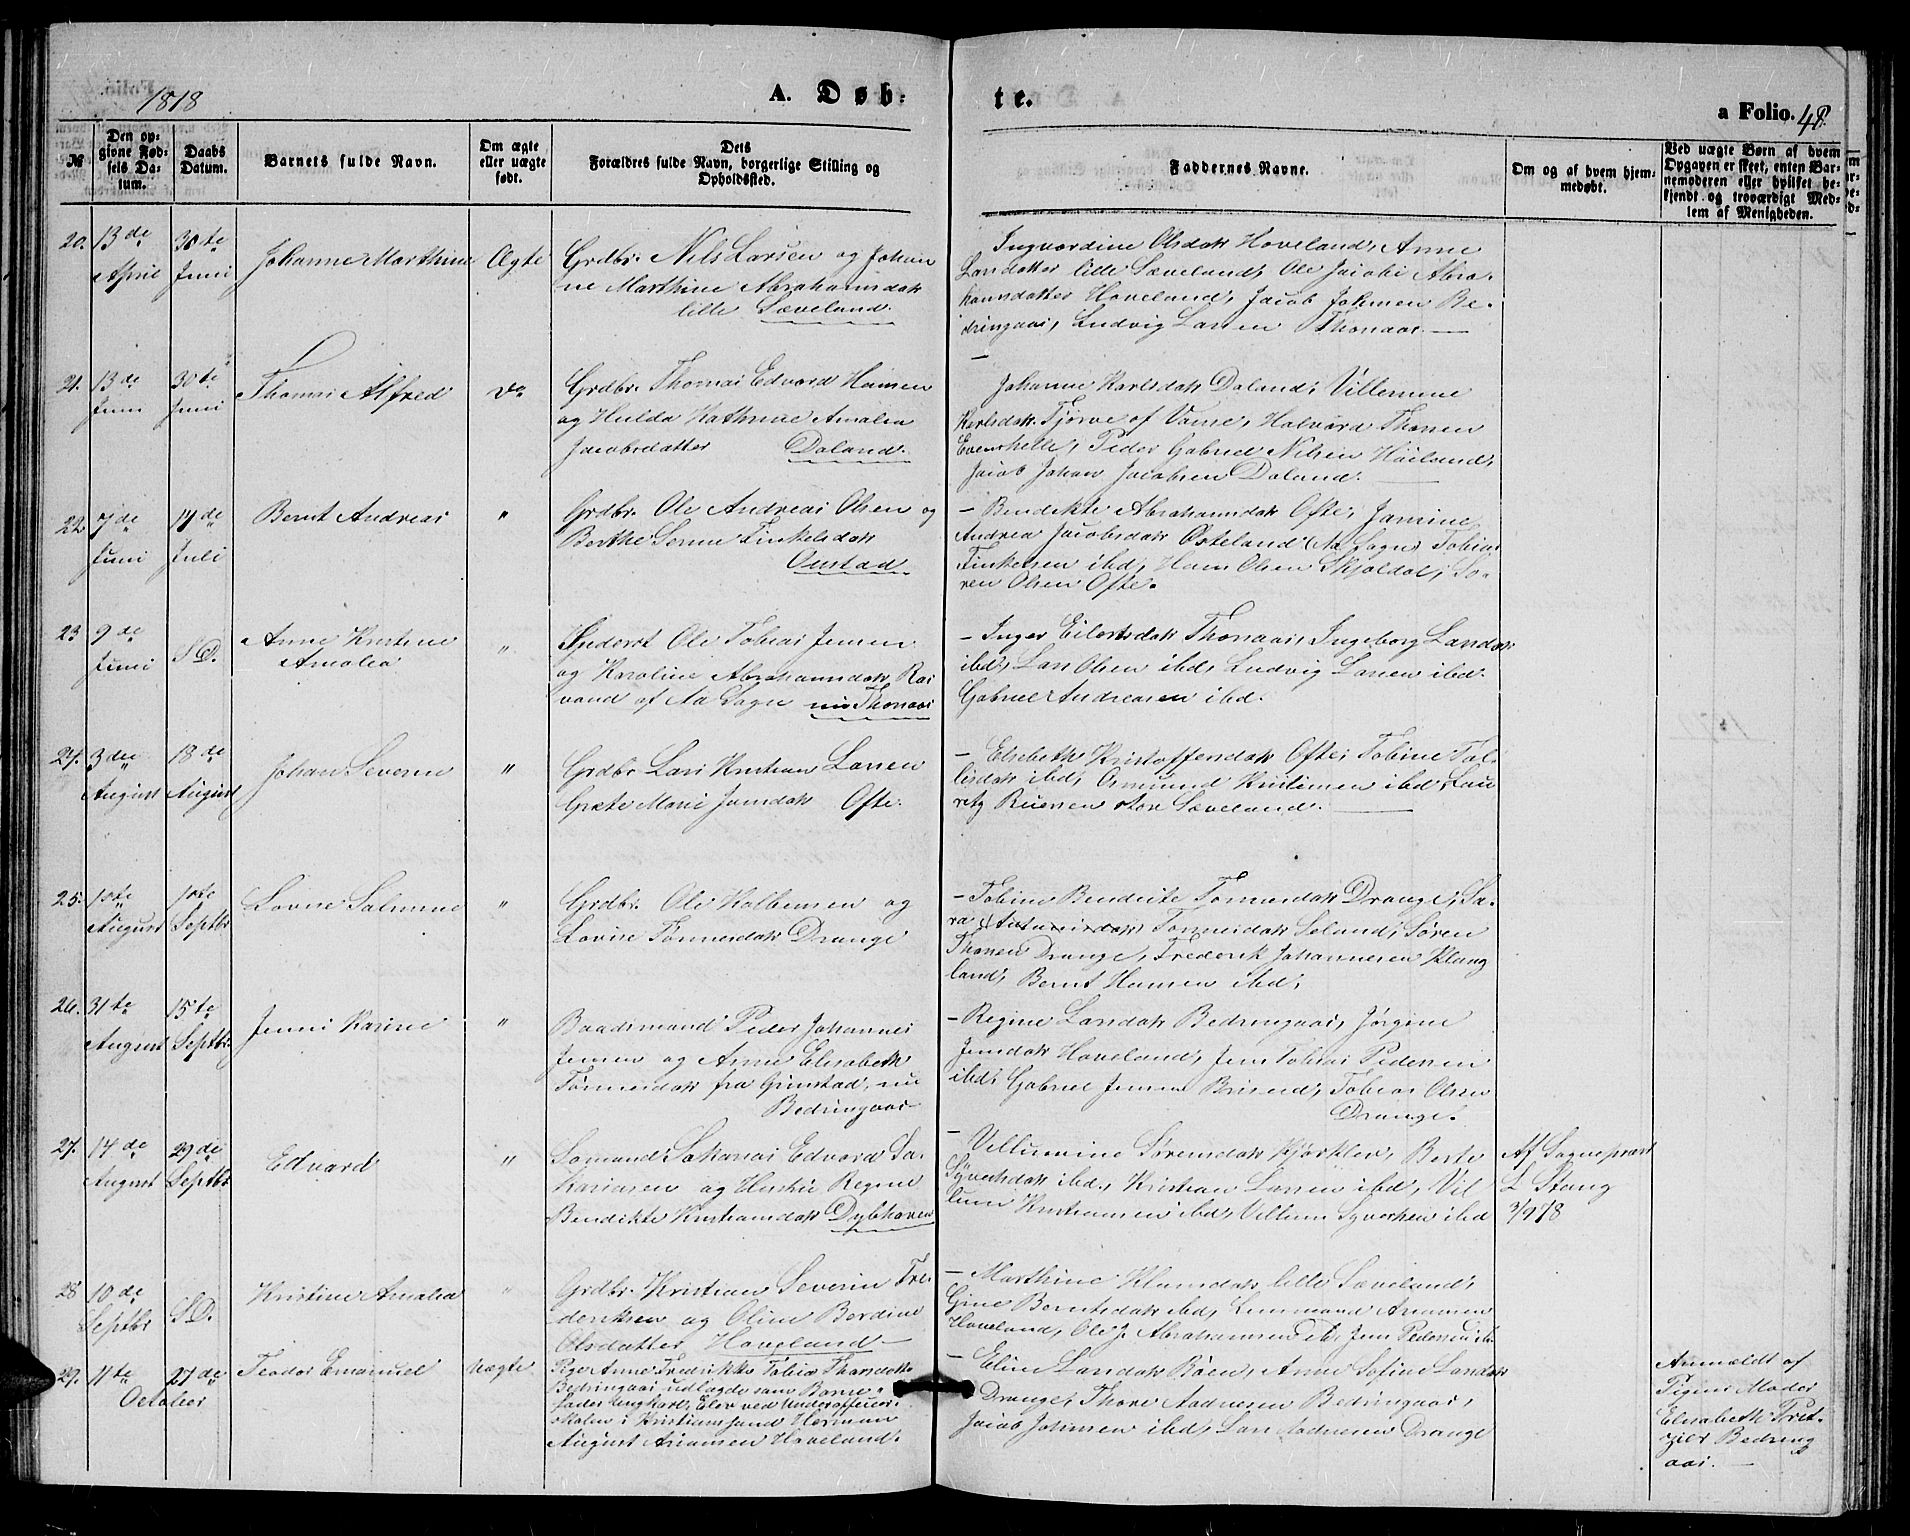 1878
A. Døb:
te.
a Folio. 48.
№
Den op-
givne Fød-
sels Da-
tum.
Daabs
Datum.
Barnets fulde Navn.
Om ægte
eller uægte
født.
Dets
Forældres fulde Navn, borgerlige Stilling og
Opholdssted.
Faddernes Navne.
Om og af hvem hjem-
medøbt.
Ved uægte Børn af hvem
Opgaven er skeet, enten Bar-
nemoderen eller hvilket be-
kjendt og troværdigt Med-
lem af Menigheden.
20. 13de April
30te Juni
Johanne Marthine
Ægte
Grdbr. Nils Larsen og Johan
ne Marthine Abrahamsdatr
lille Sæveland.
Ingvordine Olsdatr Hoveland, Anne
Larsdatter lille Sæveland, Ole Jacobi Abra-
hamsdatter Hoveland, Jacob Johnsen Be-
dringaas, Ludvig Larsen Thonaas.
21. 13de Juni
30te Juni
Thomas Alfred
do
Grdbr. Thomas Edvard Hansen
og Hulda Kathrine Amalia
Jacobsdatter Daland.
Johanne Karlsdatr Daland, Villemine
Karlsdatr Tjørve af Vanse, Halvard Thorsen
Evenshelle, Peder Gabriel Nilsen Høiland,
Jacob Johan Jacobsen Daland.
22 7de Juni
14de Juli
Bernt Andreas
"
Grdbr. Ole Andreas Olsen og
Berthe Serine Finkelsdatr
Oustad.
– Bendikte Abrahamsdatr Ofte, Jamine
Andrea Jacobsdatr Østeland (Aa Sogn) Tobias
Finkelsen ibd, Hans Olsen Skjoldal, Sø-
ren Olsen Ofte.
23 9de Juni
S.D.
Anne Kristine
Amalia
"
Ole Tobias Jensen
og Karoline Abrahamsdatr Ras
vand af Aa Sogn nu Thonaas
– Inger Eilertsdatr Thonaas, Ingeborg Larsdatr
ibd, Lars Olsen ibd, Ludvig Larsen ibd.
Gabriel Andreasen ibd.
24. 3die August
18de August
Johan Severin
"
Grdbr Lars Kristian Larsen
Grete Marie Jansdatr Ofte.
– Elisbeth Kristoffersdatr Ofte, Tobine Tol-
lisdatr ibd, Osmund Kristensen ibd, Lau
ritz store Sæveland.
25. 1ste August
1ste Septbr
Lovise Salmine
"
Grdbr. Ole Kolbensen og
Lovise Tønnesdatr Drange
– Tobine Bendicte Tønnesdatr Drange, Sa-
ra Tønnesdatr Seland, Søren
Thorsen Drange, Frederik Johannesen Klung
land, Bernt Hansen ibd,
26. 31te August
15te Septbr.
Jenni Karine
"
Baadsmand Peder Johannes
Jensen og Anne Elisabeth
Tønnesdatr fra Grimstad, nu
Bedringaas
– Regine Larsdatr Bedringaas, Jørgine
Jensdatr Hoveland, Jens Tobias Pedersen
ibd, Gabriel Jensen Briseid, Tobias Olsen
Drange.
27. 14de August
29de Septbr
Edvard
"
Sømand Sakarias Edvard Sa-
kariasen og Regine
Bendikte Kristiansdatr Dybhaven
– Villumine Sørensdatr Kjørklev, Berte
Syvertsdatr ibd., Kristian Larsen ibd, Vil
lum Kristiansen ibd, Villum Syversen ibd
Af Sognepræst
L Stang
3/9 78
28 10de Septbr
S.D.
Kristine Amalia
"
Grdbr. Kristian Severin Fre-
deriksen og Oline Berdine
Olsdatter Hoveland –
– Marthine Klausdatr lille Sæveland,
Gine Berntsdatr ibd, Asiassen
Hoveland, Ole J. Abrahamsen ib, Jens Pedersen ib.
29. 11te
27de
October
Teodor Emanuel
Uægte
Pige Anne Fredrikke Tobia Tharsdatr
Bedringaas, udlagde som Barne-
fader Ungkarl, Elev ved Underofficer-
skolen i Kristianssand Herman
August Asiassen Hoveland.
– Eline Larsdatr Røen, Anne Sofine Larsdatr
Drange, Thore Aadnesen Bedringaas,
Jacob Johnsen ibd, Lars Aadnesen Drange
Anmeldt af
Pigens Moder
Elisabeth Fret-
zier Bedring
aas.